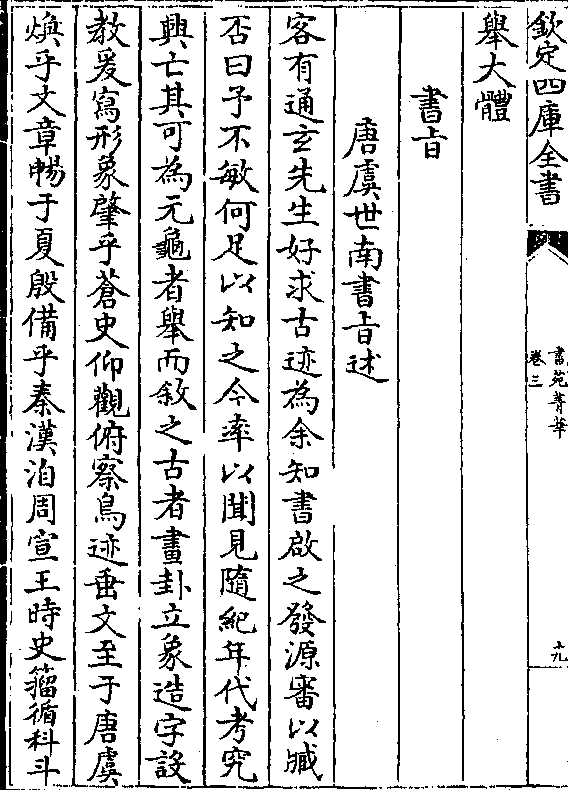 欽定四庫全書
書苑菁華
卷三
十九
舉大體
書旨
唐虞世南書旨述
客有通玄先生好求古迹為余知書啟之發源審以臧
否曰予不敏何足以知之今率以聞見隨紀年代考究
興亡其可為元龜者舉而敘之古者畫卦立象造字設
教爰寫形象肇乎蒼史仰觀俯察鳥迹垂文至于唐虞
煥乎文章暢于夏殷備乎秦漢洎周宣王時史籀循科斗